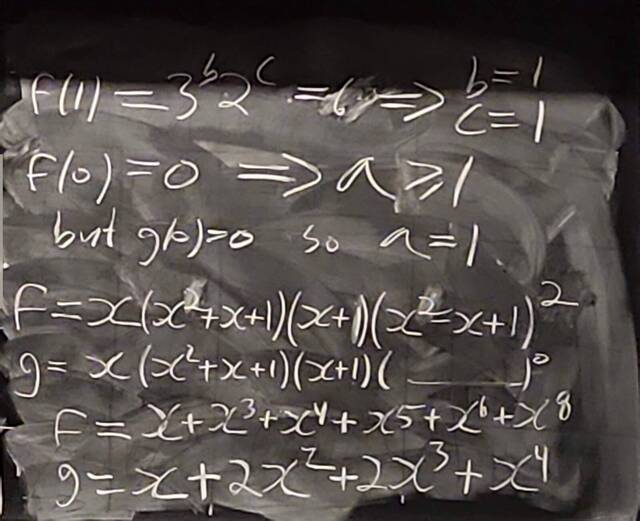 f(1) = 3^b 2^c = 6 ⟹ b = 1
c = 1
f(0) = 0 ⟹ a ≥ 1
but g(0)=0 so a = 1
f = x(x²+x+1)(x+1)(x²-x+1)²
g = x(x²+x+1)(x+1)(______)⁰
f = x+x³+x⁴+x⁵+x⁶+x⁸
g = x+2x²+2x³+x⁴